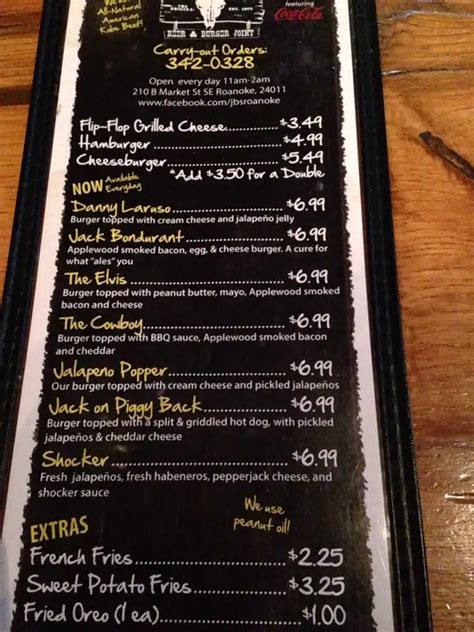 We're
All-Natural
American
Kobe Beef!
EST. 1993
BEER & BURGER JOINT
featuring
Coca-Cola
Carry-out Orders:
342-0328
Open every day 11am-2am
210 B Market St SE Roanoke, 24011
www.facebook.com/jbsroanoke
Flip-Flop Grilled Cheese $3.49
Hamburger $4.99
Cheeseburger $5.49
*Add $3.50 for a Double
NOW Available Everyday
Danny Laruso $6.99
Burger topped with cream cheese and jalapeño jelly
Jack Bondurant $6.99
Applewood smoked bacon, egg, & cheese burger. A cure for
what "ales" you
The Elvis $6.99
Burger topped with peanut butter, mayo, Applewood smoked
bacon and cheese
The Cowboy $6.99
Burger topped with BBQ sauce, Applewood smoked bacon
and cheddar
Jalapeno Popper $6.99
Our burger topped with cream cheese and pickled jalapeños
Jack on Piggy Back $6.99
Burger topped with a split & griddled hot dog, with pickled
jalapeños & cheddar cheese
Shocker $6.99
Fresh jalapeños, fresh habeneros, pepperjack cheese, and
shocker sauce
We use
peanut oil!
EXTRAS
French Fries $2.25
Sweet Potato Fries $3.25
Fried Oreo (1 ea) $1.00